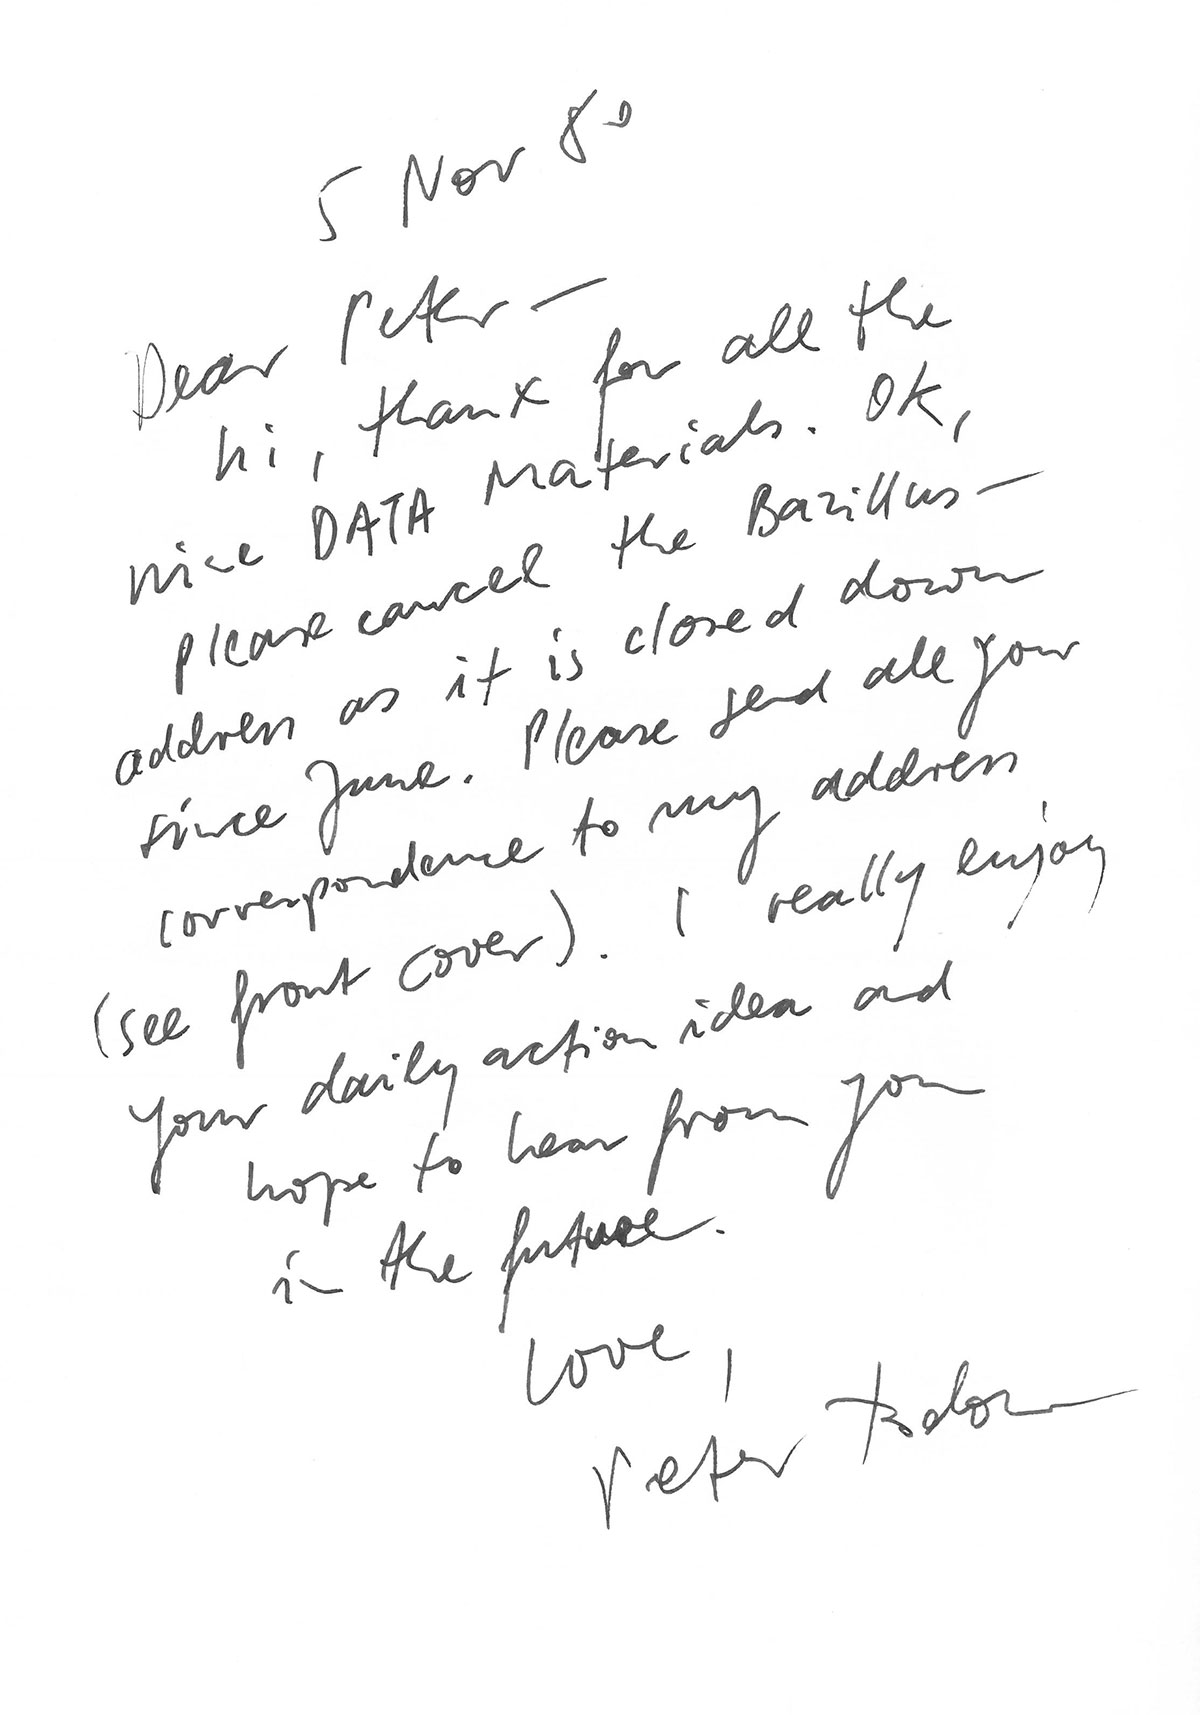 5 Nov 80
Dear Peter —
hi, thanx for all the
nice DATA Materials. OK,
please cancel the Bazillus —
address as it is closed down
since June. Please send all your
correspondence to my address
(see front cover). I really enjoy
your daily action idea and
hope to hear from you
in the future.
Love,
Peter